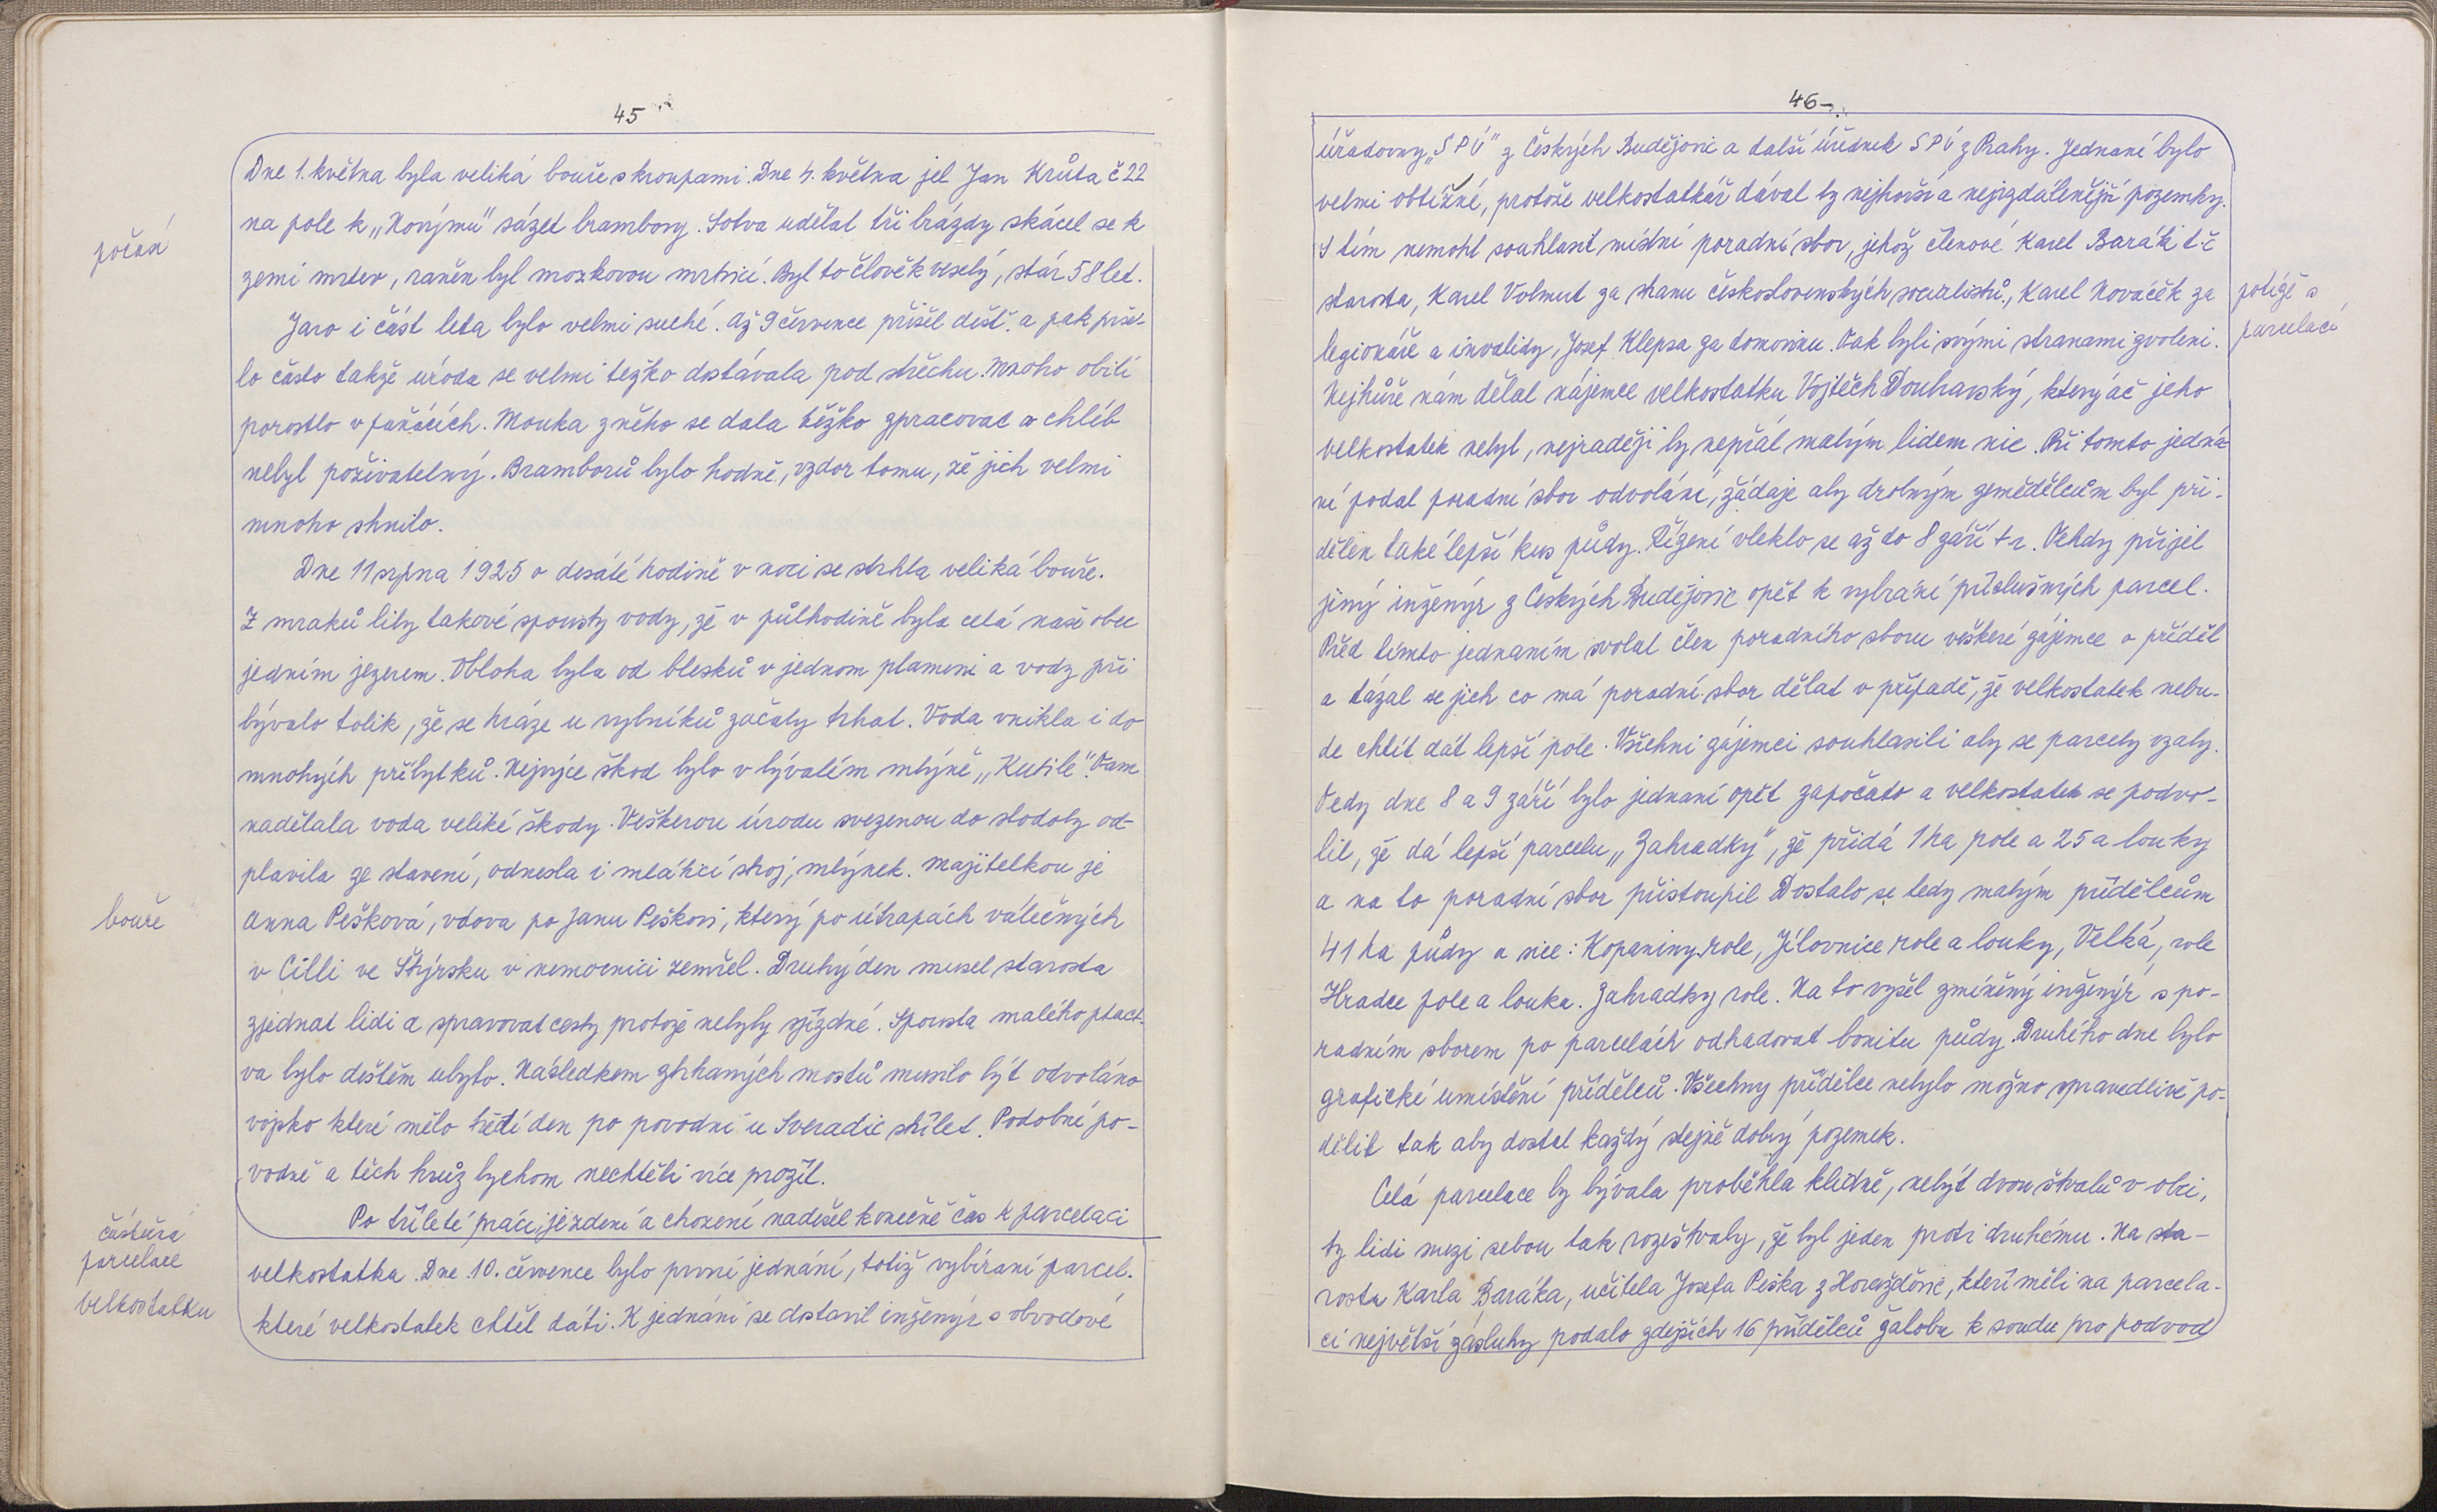 45
Dne 1. května byla veliká bouře s kroupami. Dne 4. května jel Jan Krůta č 22
na pole k „Novýmu" sázet brambory. Sotva udělal tři brázdy skácel se k
počasí
zemi mrtev, raněn byl mozkovou mrtvicí. Byl to člověk veselý, stár 58 let.
Jaro i část leta bylo velmi suché. Až 9 července přišel dešť. a pak prše-
lo často takže úroda se velmi težko dostávala pod střechu. Mnoho obilí
porostlo v panácích. Mouka z něho se dala těžko zpracovat a chléb
nebyl poživatelný. Bramborů bylo hodně, vzdor tomu, že jich velmi
mnoho shnilo.
Dne 11 srpna 1925 o desáté hodině v noci se strhla veliká bouře.
Z mraků lily takové spousty vody, že v půlhodině byla celá naše obec
jedním jezerem. Obloha byla od blesků v jednom plameni a vody při
bývalo tolik, že se hráze u rybníků začaly trhat. Voda vnikla i do
mnohých příbytků. Nejvýce škod bylo v bývalém mlýně „Kutile". Tam
nadělala voda veliké škody. Veškerou úrodu svezenou do stodoly od-
plavila ze stavení, odnesla i mlátící stroj, mlýnek. Majitelkou je
bouře
Anna Pešková, vdova po Janu Peškovi, který po útrapách válečných
v Cilli ve Štýrsku v nemocnici zemřel. Druhý den musel starosta
zjednat lidi a spravovat cesty protože nebyly sjízdné. Spousta malého ptact-
va bylo deštěm ubyto. Následkem ztrhaných mostů musilo být odvoláno
vojsko které mělo třetí den po povodni u Sveradic střílet. Podobné po-
vodně a těch hrůz bychom nechtěli více prožít.
Po tříleté práci, ježdení a chození nadešel konečně čas k parcelaci
částečná
parcelace
velkostatku
velkostatka. Dne 10. července bylo první jednání, totiž vybírání parcel.
které velkostatek chtěl dáti. K jednání se dostavil inženýr s obvodové
46
úřadovny „SPÚ" z Českých Budějovic a další úředník SPÚ z Prahy. Jednaní bylo
velmi obtížné, protože velkostatkář dával ty nejhorší a nejvzdálenější pozemky.
S tím nemohl souhlasit místní poradní sbor, jehož členové Karel Barák t.č
starosta, Karel Volmut za stranu československých socialistů, Karel Nováček za
potíže s
parcelací
legionáře a invalidy, Josef Klepsa za domovinu. Tak byli svými stranami zvoleni.
Nejhůře nám dělal nájemce velkostatku Vojtěch Douhavský, který ač jeho
velkostatek nebyl, nejraději by nepřál malým lidem nic. Při tomto jedná-
ní podal poradní sbor odvolání, žádaje aby drobným zemědělcům byl při-
dělen také lepší kus půdy. Řízení vleklo se až do 8 září t r. Tehdy přijel
jiný inženýr z Českých Budějovic opět k vybrání příslušných parcel.
Před tímto jednaním svolal člen poradního sboru veškeré zájemce o příděl
a tázal se jich co má poradní sbor dělat v případě, že velkostatek nebu-
de chtít dát lepší pole. Všichni zájemci souhlasili aby se parcely vzaly.
Tedy dne 8 a 9 září bylo jednaní opět započato a velkostatek se podvo-
lil, že dá lepší parcelu „Zahradky", že přidá 1 ha pole a 25 a louky
a na to poradní sbor přistoupil Dostalo se tedy malým přídělcům
41 ha půdy a sice: Kopaniny role, Jílovnice role a louky, Velká, role
Hradce pole a louka. Zahradky role. Na to vyšel zmíněný inženýr s po-
radním sborem po parcelách odhadovat bonitu půdy. Druhého dne bylo
grafické umístění přídělců. Všechny přídělce nebylo možno spravedlivě po-
dělit tak aby dostal každý stejně dobrý pozemek.
Celá parcelace by bývala proběhla klidně, nebýt dvou štvalů v obci,
ty lidi mezi sebou tak rozeštvaly, že byl jeden proti druhému. Na sta-
rosta Karla Baráka, učitela Josefa Peška z Horažďovic, kteří měli na parcela-
ci největší zásluhy podalo zdejších 16 přídělců žalobu k soudu pro podvod